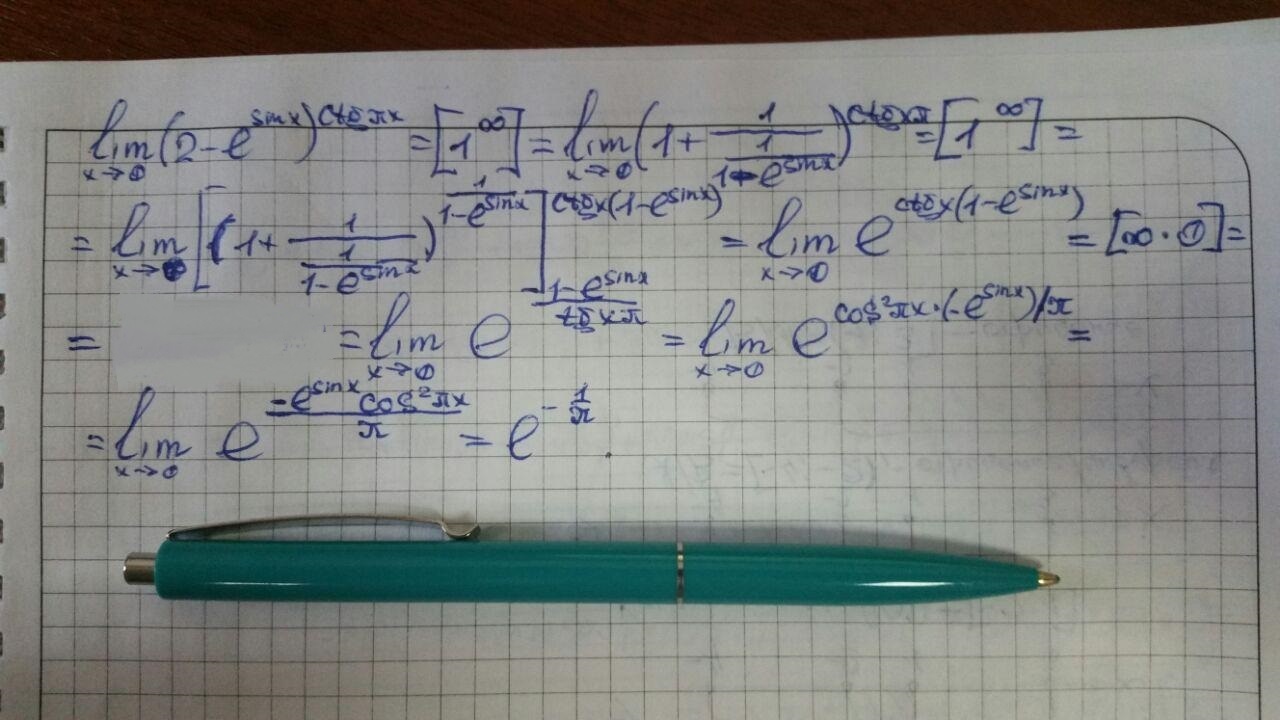 lim x→0 (2-e^sinx)^ctgπx = [1^∞] = lim x→0 (1+1/(1/(1-e^sinx)))^ctgxπ = [1^∞] =
= lim x→0 [(1+1/(1/(1-e^sinx)))^(1/(1-e^sinx))]^ctgx(1-e^sinx) = lim x→0 e^ctgx(1-e^sinx) = [∞·0] =
= = lim x→0 e^((1-e^sinx)/(tgxπ)) = lim x→0 e^(cos²πx·(-e^sinx)/π) =
= lim x→0 e^((-e^sinx cos²πx)/π) = e^(-1/π).